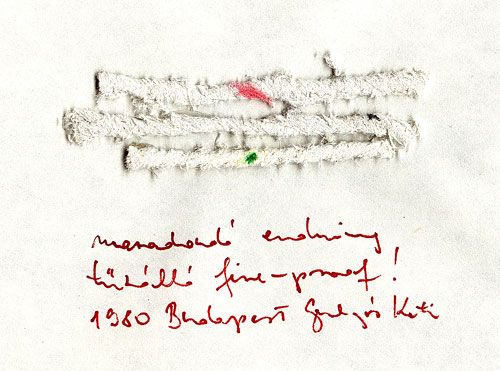 maradandó enduring
tűzálló fire-proof!
1980 Budapest Gulyás Kati